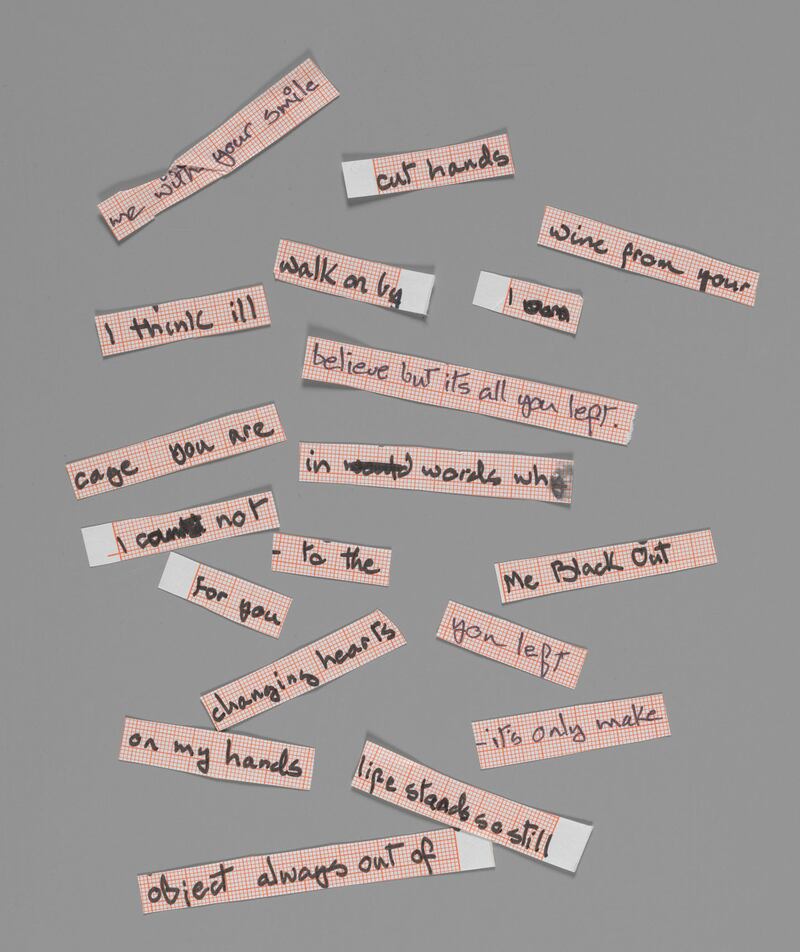 me with your smile
cut hands
wine from your
walk on by
I
I think ill
believe but its all you left.
cage you are
in words
I not
- to the
Me Black Out
for you
you left
changing hearts
-it's only make
on my hands
life stands so still
object always out of